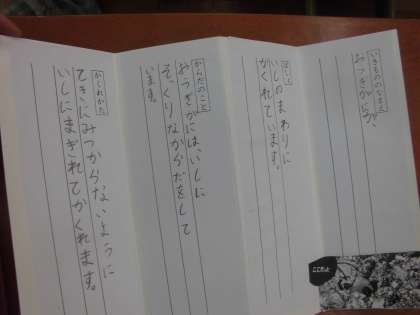 いきもののなまえ
おうぎがにが、
ばしょ
いしのまわりに
かくれています。
からだのこと
おうぎがには、いしに
そっくりなからだをして
います。
かくれかた
てきにみつからないように
いしにまぎれてかくれます。
ここだよ